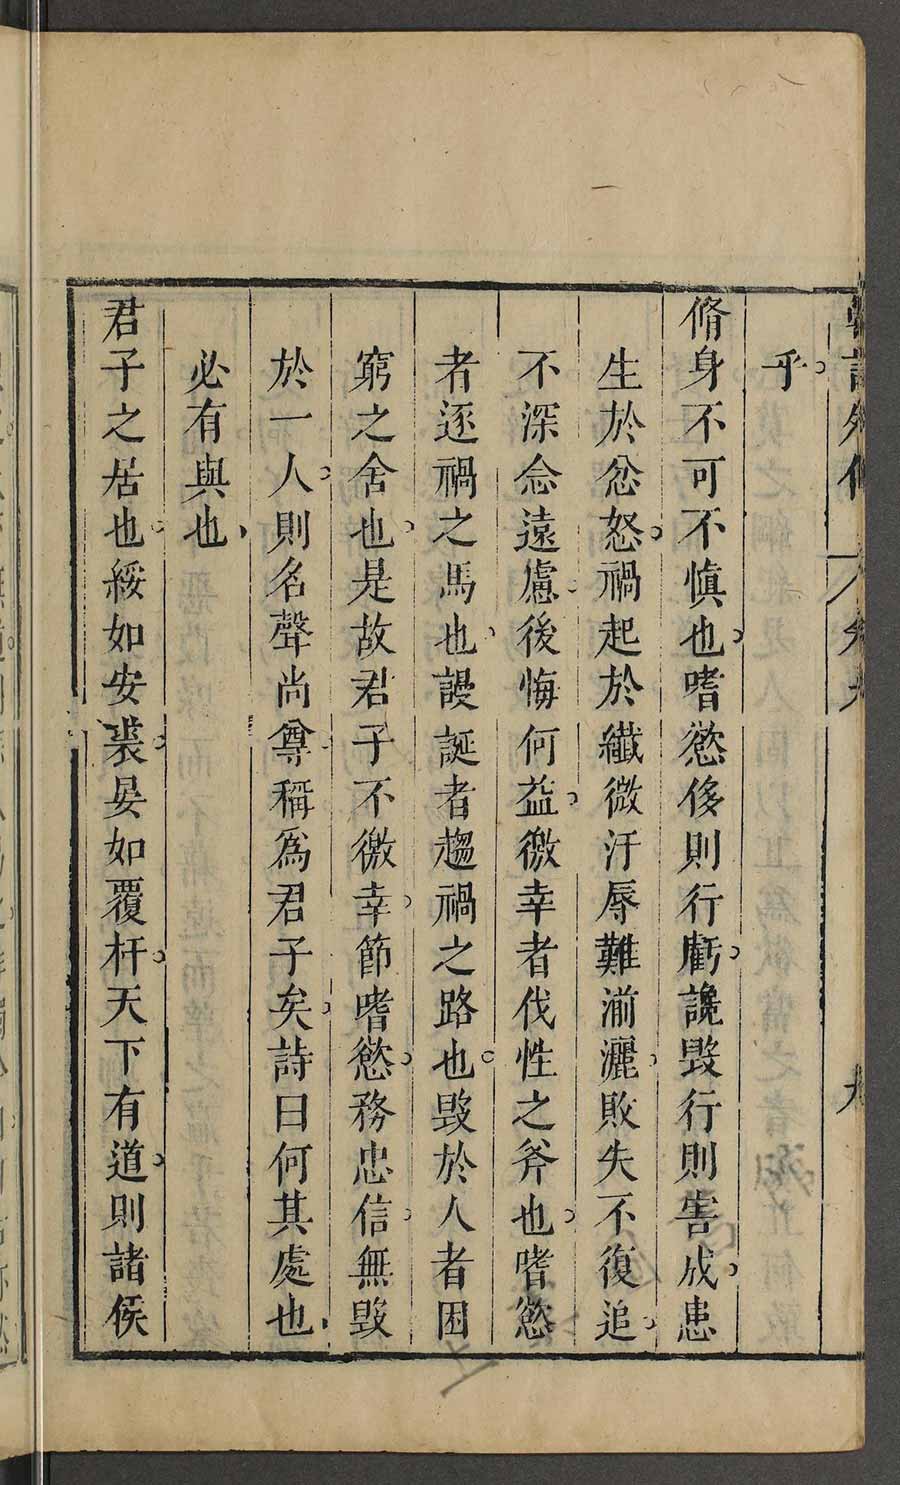 韓詩外傳 卷九 九
乎。
脩身不可不慎也。嗜慾侈則行虧。讒毀行則害成。患
生於忿怒。禍起於纖微。汙辱難湔灑。敗失不復追。
不深念遠慮。後悔何益。徼幸者伐性之斧也。嗜慾
者逐禍之馬也。謾誕者趨禍之路也。毀於人者困
窮之舍也。是故君子不徼幸。節嗜慾。務忠信。無毀
於一人。則名聲尚尊。稱爲君子矣。詩曰何其處也。
必有與也。
君子之居也。綏如安裘。晏如覆杅。天下有道。則諸侯